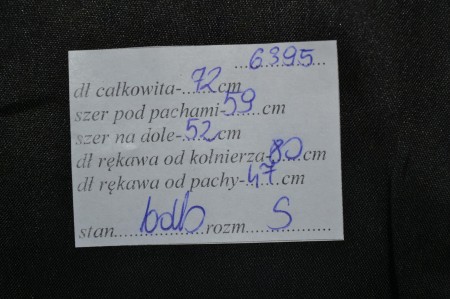 6395
dł całkowita-...72cm
szer pod pachami-59...cm
szer na dole-52cm
dł rękawa od kołnierza-80...cm
dł rękawa od pachy-47cm
stan....bdb....rozm...S